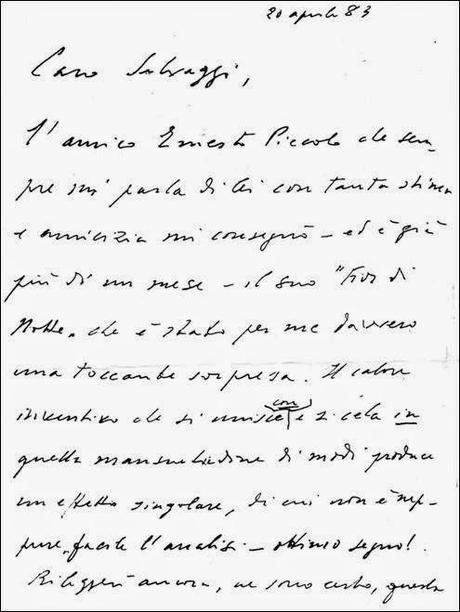 20 aprile 83
Caro Selvaggi,
l'amico Ernesto Piccolo che sem-
pre mi parla di lei con tanta stima
e amicizia mi consegnò – ed è già
più di un mese – il suo "Fior di
Notte„ che è stato per me davvero
una toccante sorpresa. Il calore
inventivo che si unisce e si cela in
con
quella mansuetudine di modi produce
un effetto singolare, di cui non è nep-
pure facile l'analisi – ottimo segno!
Rileggerò ancora, ne sono certo, questa